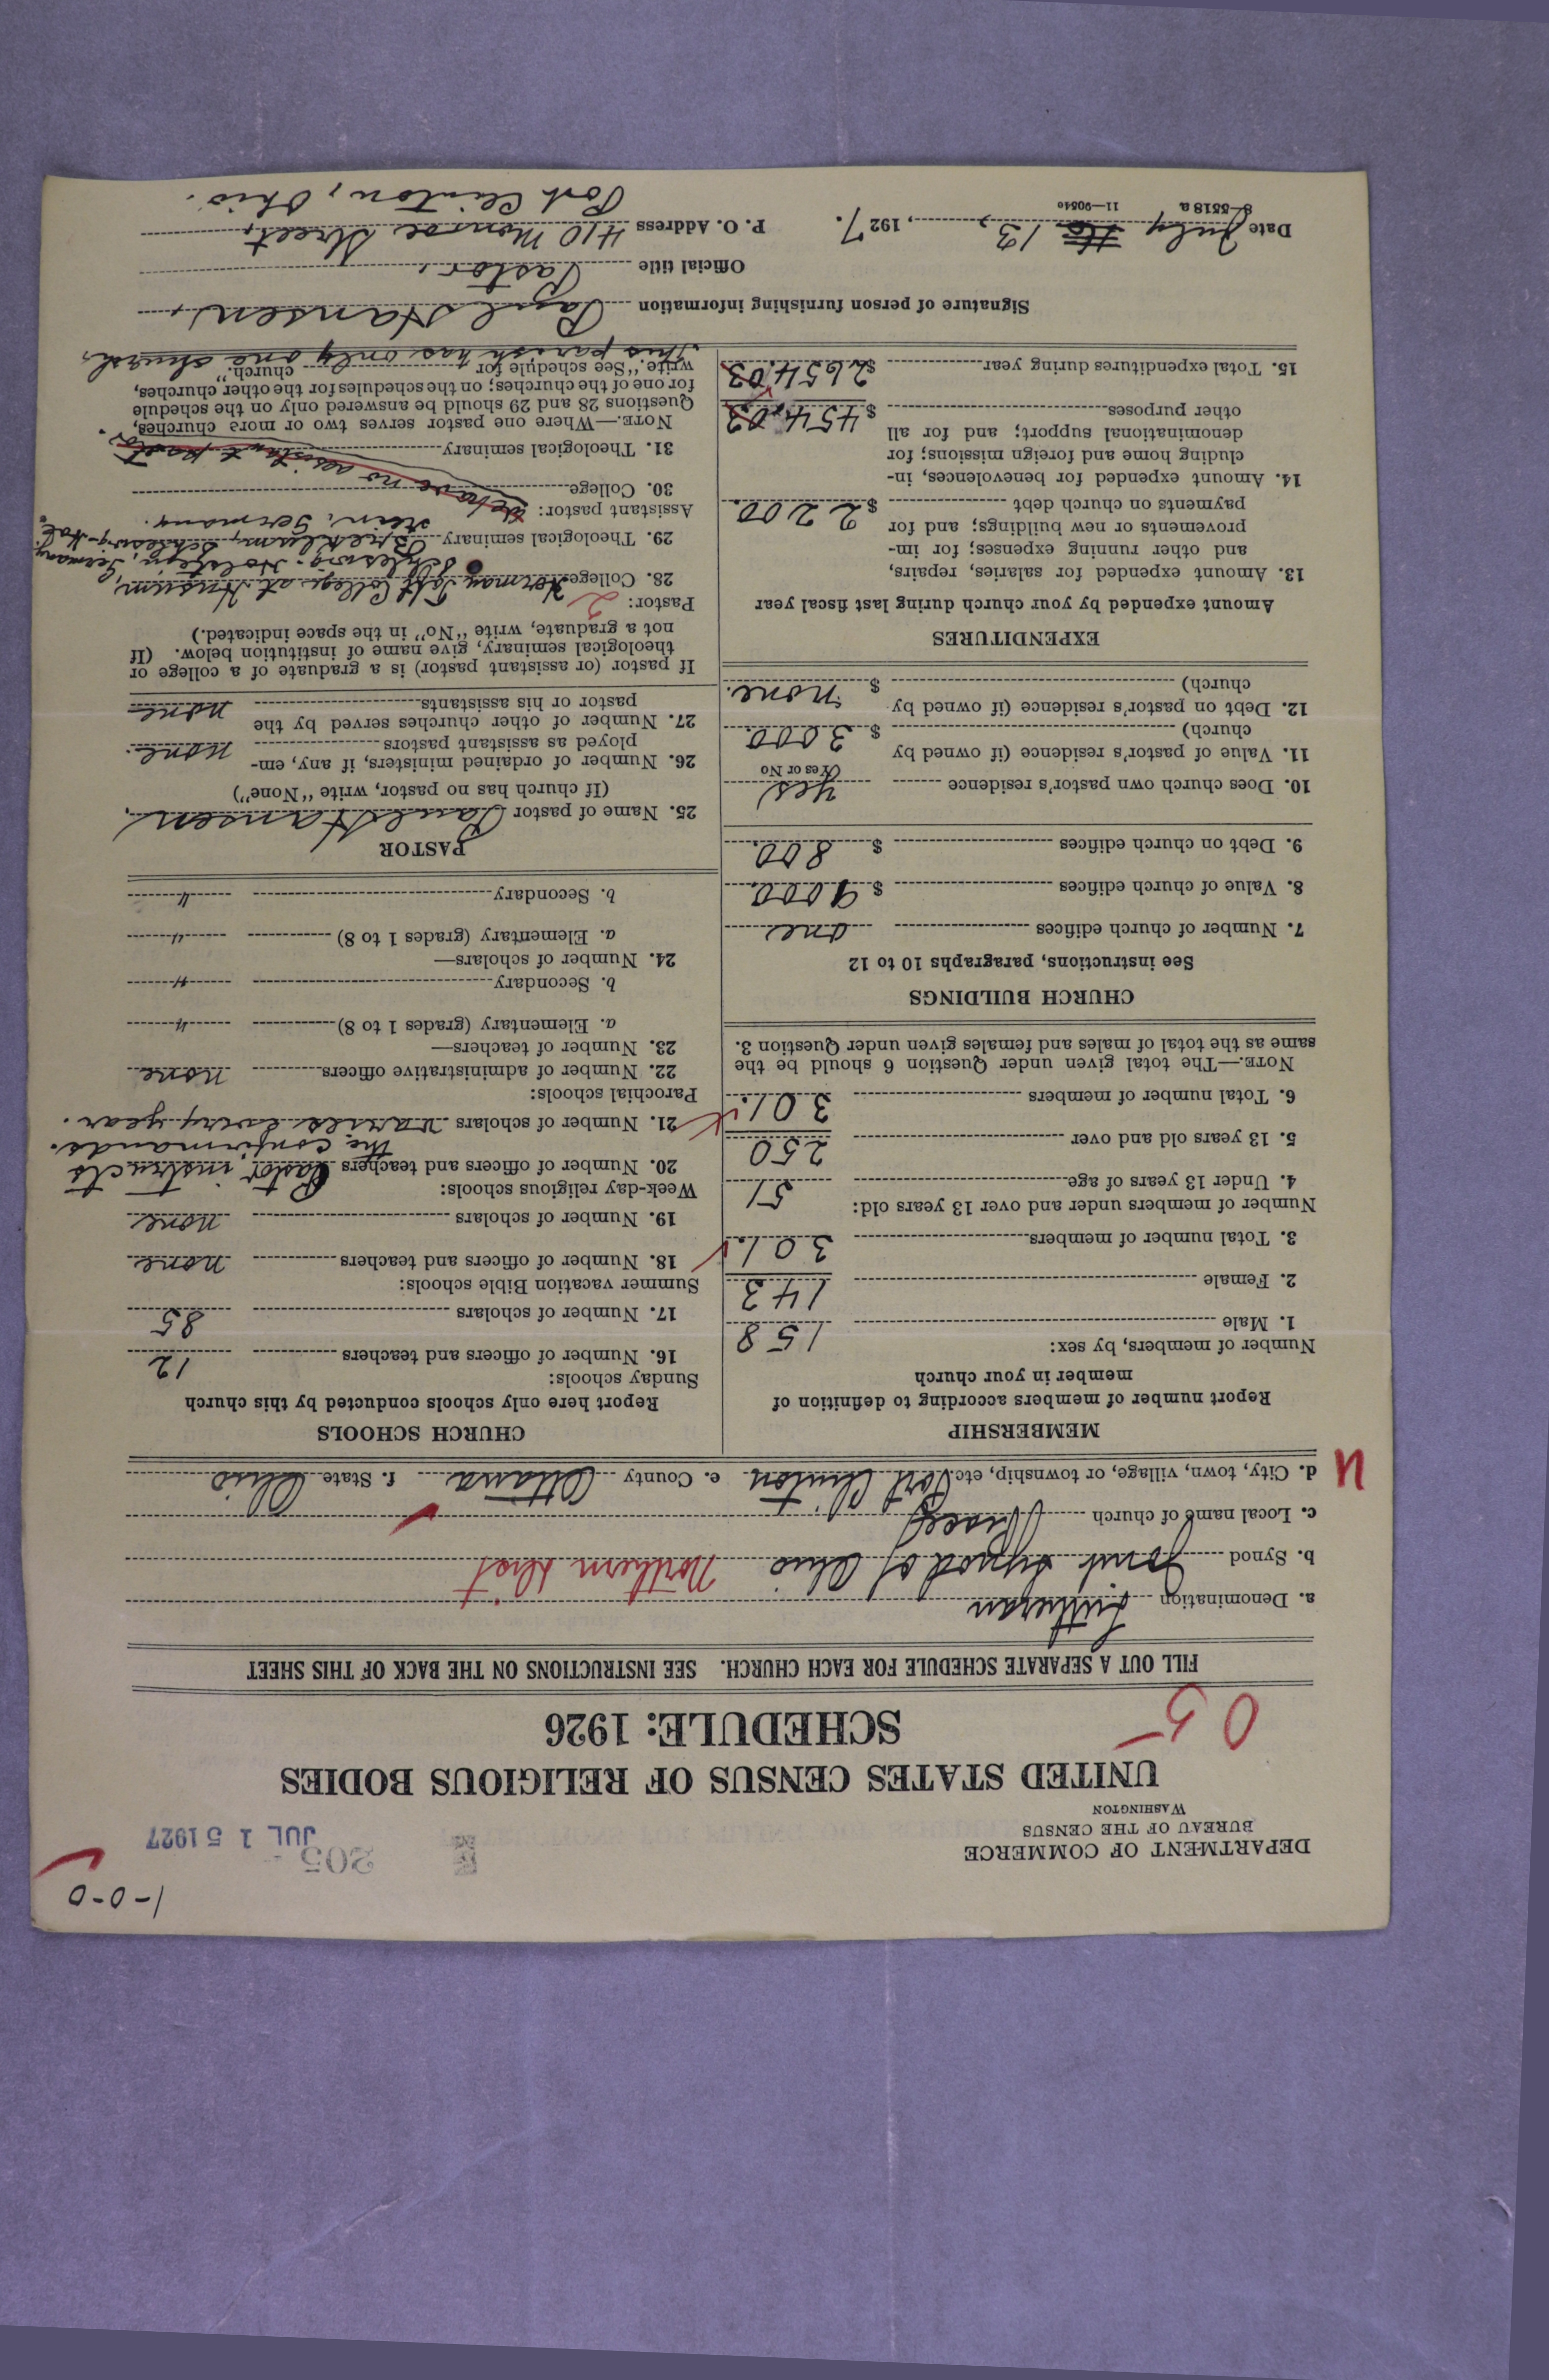 1-0-0
DEPARTMENT OF COMMERCE
BUREAU OF THE CENSUS
WASHINGTON
205
JUL 15 1927
UNITED STATES CENSUS OF RELIGIOUS BODIES
SCHEDULE: 1926
05
FILL OUT A SEPARATE SCHEDULE FOR EACH CHURCH. SEE INSTRUCTIONS ON THE BACK OF THIS SHEET
a. Denomination Lutheran
b. Synod Joint Synod of Ohio Northern Dist
c. Local name of church Grace
d. City, town, village, or township, etc. Port Clinton e. County Ottawa f. State Ohio
MEMBERSHIP
Report number of members according to definition of
member in your church
Number of members, by sex:
1. Male 158
2. Female 143
3. Total number of members 301
Number of members under and over 13 years old:
4. Under 13 years of age 51
5. 13 years old and over 250
6. Total number of members 301
NOTE.—The total given under Question 6 should be the
same as the total of males and females given under Question 3.
CHURCH BUILDINGS
See instructions, paragraphs 10 to 12
7. Number of church edifices one
8. Value of church edifices $ 9000
9. Debt on church edifices $ 800
10. Does church own pastor's residence Yes
(Yes or No
11. Value of pastor's residence (if owned by
church) $ 3000
12. Debt on pastor's residence (if owned by
church) $ none.
EXPENDITURES
Amount expended by your church during last fiscal year
13. Amount expended for salaries, repairs,
and other running expenses; for im-
provements or new buildings; and for
payments on church debt $ 2200.
14. Amount expended for benevolences, in-
cluding home and foreign missions; for
denominational support; and for all
other purposes $ 454.03
15. Total expenditures during year $ 2654.03
CHURCH SCHOOLS
Report here only schools conducted by this church
Sunday schools:
16. Number of officers and teachers 12
17. Number of scholars 85
Summer vacation Bible schools:
18. Number of officers and teachers none
19. Number of scholars none
Week-day religious schools:
20. Number of officers and teachers Pastor instructs
the confirmands.
21. Number of scholars varies every year.
Parochial schools:
22. Number of administrative officers none
23. Number of teachers—
a. Elementary (grades 1 to 8) "
b. Secondary "
24. Number of scholars—
a. Elementary (grades 1 to 8) "
b. Secondary "
PASTOR
25. Name of pastor Paul Hansen.
(If church has no pastor, write "None")
26. Number of ordained ministers, if any, em-
ployed as assistant pastors none.
27. Number of other churches served by the
pastor or his assistants none
If pastor (or assistant pastor) is a graduate of a college or
theological seminary, give name of institution below. (If
not a graduate, write "No" in the space indicated.)
Pastor: 2
28. College Herman Tast College at Husum,
Schleswig-Holstein, Germany
29. Theological seminary Breklum, Schleswig-Hol-
stein, Germany.
Assistant pastor: We have no assistant pastor.
30. College
31. Theological seminary
NOTE.—Where one pastor serves two or more churches,
Questions 28 and 29 should be answered only on the schedule
for one of the churches; on the schedules for the other churches,
write "See schedule for church."
This parish has only one church.
Signature of person furnishing information Paul Hansen,
Official title Pastor.
Date July 13, 1927. P. O. Address 410 Monroe Street,
Port Clinton, Ohio.
8-5518 a 11—9054o